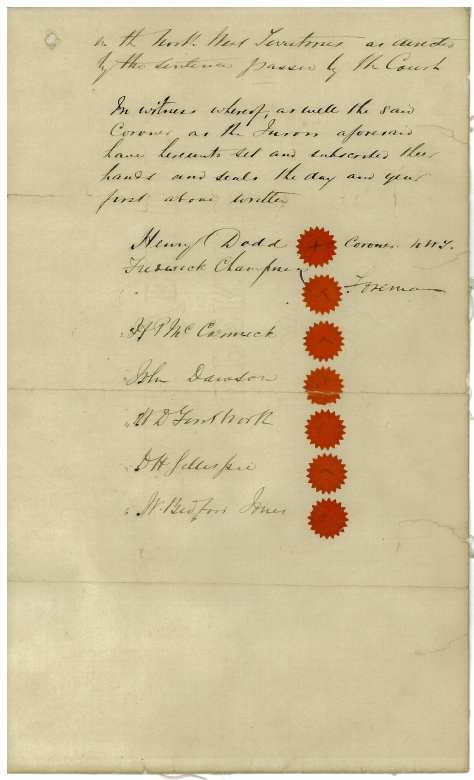 in the North West Territories as directed
by the sentence passed by the Court
In witness whereof, as well the said
Coroner as the Jurors aforesaid
have hereunto set and subscribed their
hands and seals the day and year
first above written
Henry Dodd Coroner N.W.T.
Frederick Champness
Foreman
H P McCormick
John Dawson
W D
D H Gillespie
W. Bedford Jones